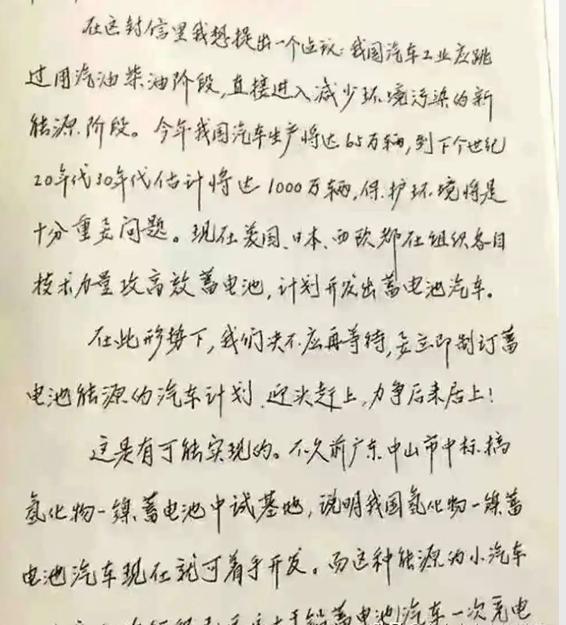 在这封信里我想提出一个建议：我国汽车工业应跳
过用汽油柴油阶段，直接进入减少环境污染的新
能源阶段。今年我国汽车生产将达65万辆，到下个世纪
20年代30年代估计将达1000万辆，保护环境将是
十分重要问题。现在美国、日本、西欧都在组织各自
技术力量攻高效蓄电池，计划开发出蓄电池汽车。
在此形势下，我们决不应再等待，要立即制订蓄
电池能源的汽车计划，迎头赶上，力争后来居上！
这是有可能实现的。不久前广东中山市中标搞
氢化物－镍蓄电池中试基地，说明我国氢化物－镍蓄
电池汽车现在就可着手开发。而这种能源为小汽车
蓄电池汽车一次充电